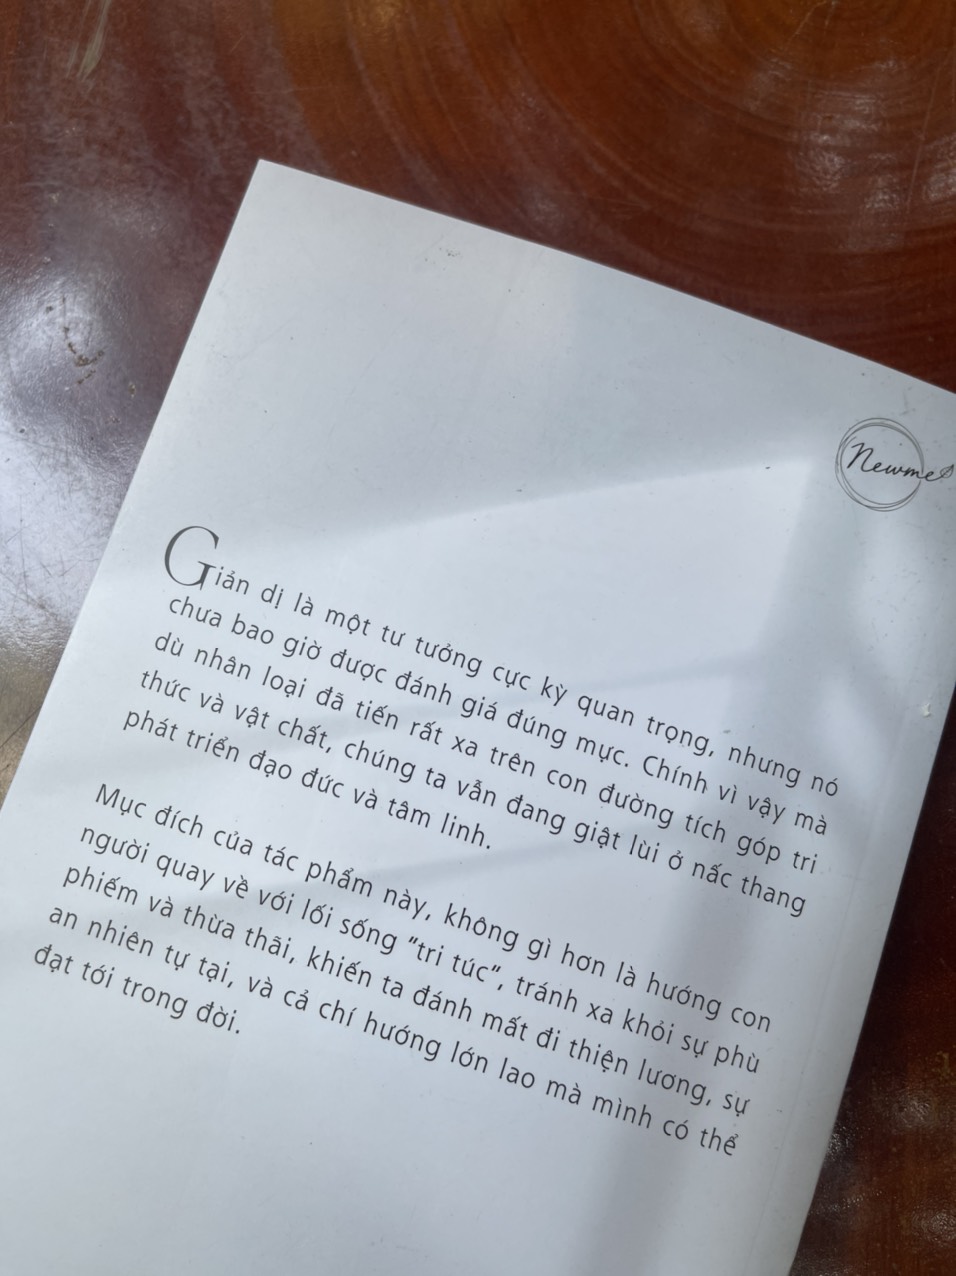 Newme
Giản dị là một tư tưởng cực kỳ quan trọng, nhưng nó
chưa bao giờ được đánh giá đúng mực. Chính vì vậy mà
dù nhân loại đã tiến rất xa trên con đường tích góp tri
thức và vật chất, chúng ta vẫn đang giật lùi ở nấc thang
phát triển đạo đức và tâm linh.
Mục đích của tác phẩm này, không gì hơn là hướng con
người quay về với lối sống “tri túc”, tránh xa khỏi sự phù
phiếm và thừa thãi, khiến ta đánh mất đi thiện lương, sự
an nhiên tự tại, và cả chí hướng lớn lao mà mình có thể
đạt tới trong đời.